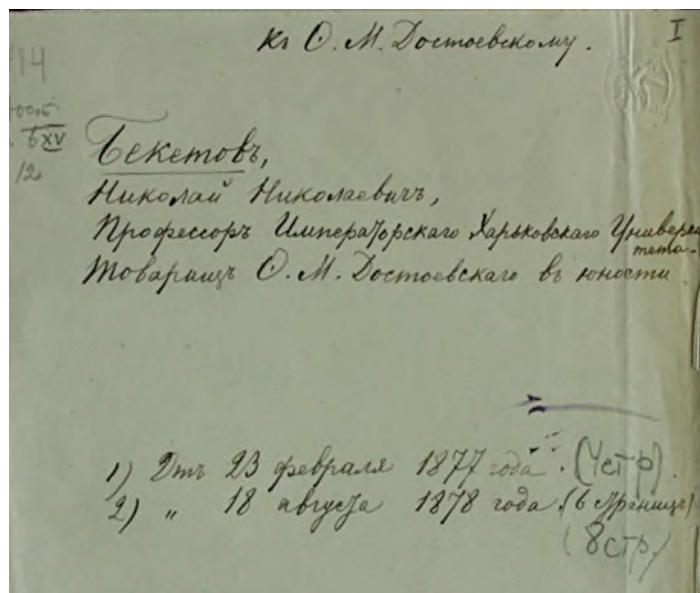 I
Къ Ѳ. М. Достоевскому.
14
XV
12
Бекетовъ,
Николай Николаевичъ,
Профессоръ Императорскаго Харьковскаго Универси
тета.
Товарищъ Ѳ. М. Достоевскаго въ юности
1) Отъ 23 февраля 1877 года. (4 стр.)
2) „ 18 августа 1878 года. (6 страницъ)
(8 стр.)